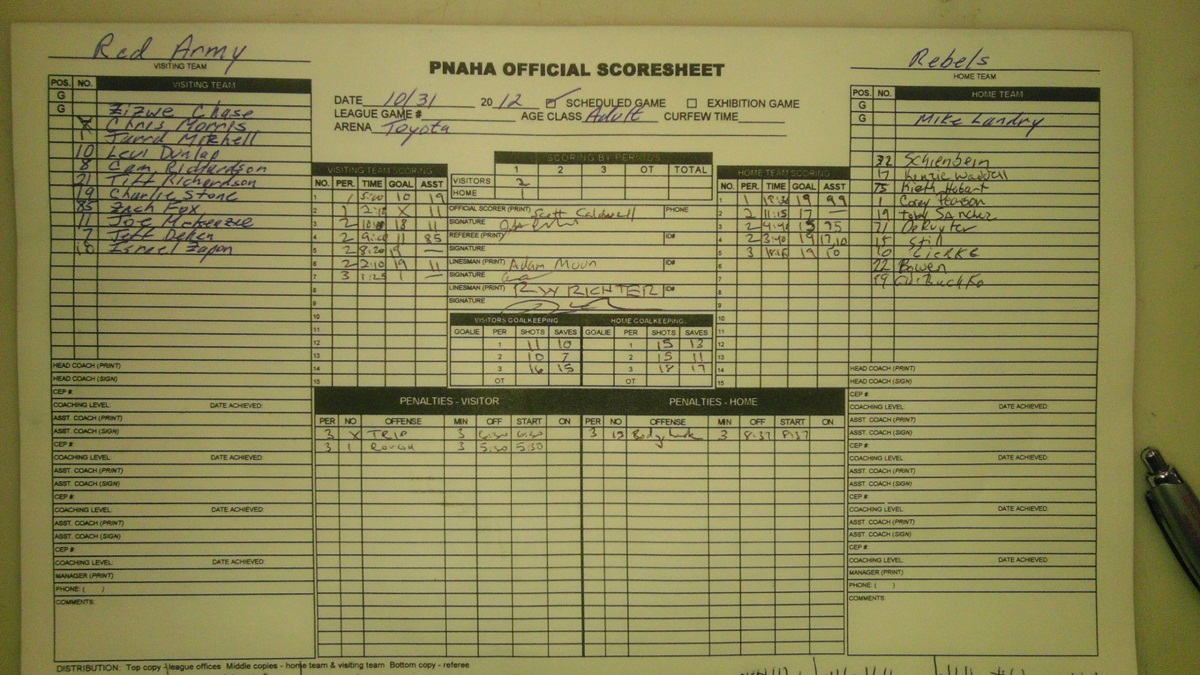 Red Army
VISITING TEAM
PNAHA OFFICIAL SCORESHEET
Rebels
HOME TEAM
DATE 10/31 2012 SCHEDULED GAME EXHIBITION GAME
LEAGUE GAME # AGE CLASS Adult CURFEW TIME
ARENA Toyota
POS. NO. VISITING TEAM
G
G Zizwe Chase
X Chris Morris
1 Jarred Mitchell
10 Levi Dunlap
8 Cam Richardson
21 Tiff Richardson
19 Charlie Stone
85 Zach Fox
11 Joe McKenzie
7 Jeff
18 Israel
HEAD COACH (PRINT)
HEAD COACH (SIGN)
CEP #:
COACHING LEVEL: DATE ACHIEVED:
ASST. COACH (PRINT)
ASST. COACH (SIGN)
CEP #:
COACHING LEVEL: DATE ACHIEVED:
ASST. COACH (PRINT)
ASST. COACH (SIGN)
CEP #
COACHING LEVEL: DATE ACHIEVED:
ASST. COACH (PRINT)
ASST. COACH (SIGN)
CEP #
COACHING LEVEL: DATE ACHIEVED:
MANAGER (PRINT)
PHONE: ( )
COMMENTS:
VISITING TEAM SCORING
NO. PER. TIME GOAL ASST
1 1 5:00 10 19
2 1 2:18 X 11
3 2 18 11
4 2 11 85
5 2 8:20 19 —
6 2 2:10 19 11
7 3 1:25 1 —
8
9
10
11
12
13
14
15
SCORING BY PERIODS
1 2 3 OT TOTAL
VISITORS 2
HOME
OFFICIAL SCORER (PRINT) Scott Caldwell PHONE
SIGNATURE
REFEREE (PRINT) ID#
SIGNATURE
LINESMAN (PRINT) Adam Moun ID#
SIGNATURE
LINESMAN (PRINT) RW RICHTER ID#
SIGNATURE
VISITORS GOALKEEPING HOME GOALKEEPING
GOALIE PER SHOTS SAVES GOALIE PER SHOTS SAVES
1 11 10 1 15 13
2 10 7 2 15 11
3 16 15 3 18 17
OT OT
HOME TEAM SCORING
NO. PER. TIME GOAL ASST
1 1 19 99
2 2 11:15 17 —
3 2 4:40 15 75
4 2 3:40 19 17,10
5 3 19 10
6
7
8
9
10
11
12
13
14
15
PENALTIES - VISITOR PENALTIES - HOME
PER NO OFFENSE MIN OFF START ON PER NO OFFENSE MIN OFF START ON
3 X TRIP 3 6:30 6:30 3 19 Body 3 8:37 8:37
3 1 ROUGH 3 5:30 5:30
POS. NO. HOME TEAM
G
G Mike Landry
32 Schienbein
17 Kenzie Waddell
75 Kieth Hobart
1 Corey Pearson
19 Toby Sanchez
71 DeRuyter
15 Still
10 Gierke
22 Bowen
99
HEAD COACH (PRINT)
HEAD COACH (SIGN)
CEP #:
COACHING LEVEL: DATE ACHIEVED:
ASST. COACH (PRINT)
ASST. COACH (SIGN)
CEP #:
COACHING LEVEL: DATE ACHIEVED:
ASST. COACH (PRINT)
ASST. COACH (SIGN)
CEP #
COACHING LEVEL: DATE ACHIEVED:
ASST. COACH (PRINT)
ASST. COACH (SIGN)
CEP #:
COACHING LEVEL: DATE ACHIEVED:
MANAGER (PRINT)
PHONE: ( )
COMMENTS:
DISTRIBUTION: Top copy - league offices Middle copies - home team & visiting team Bottom copy - referee